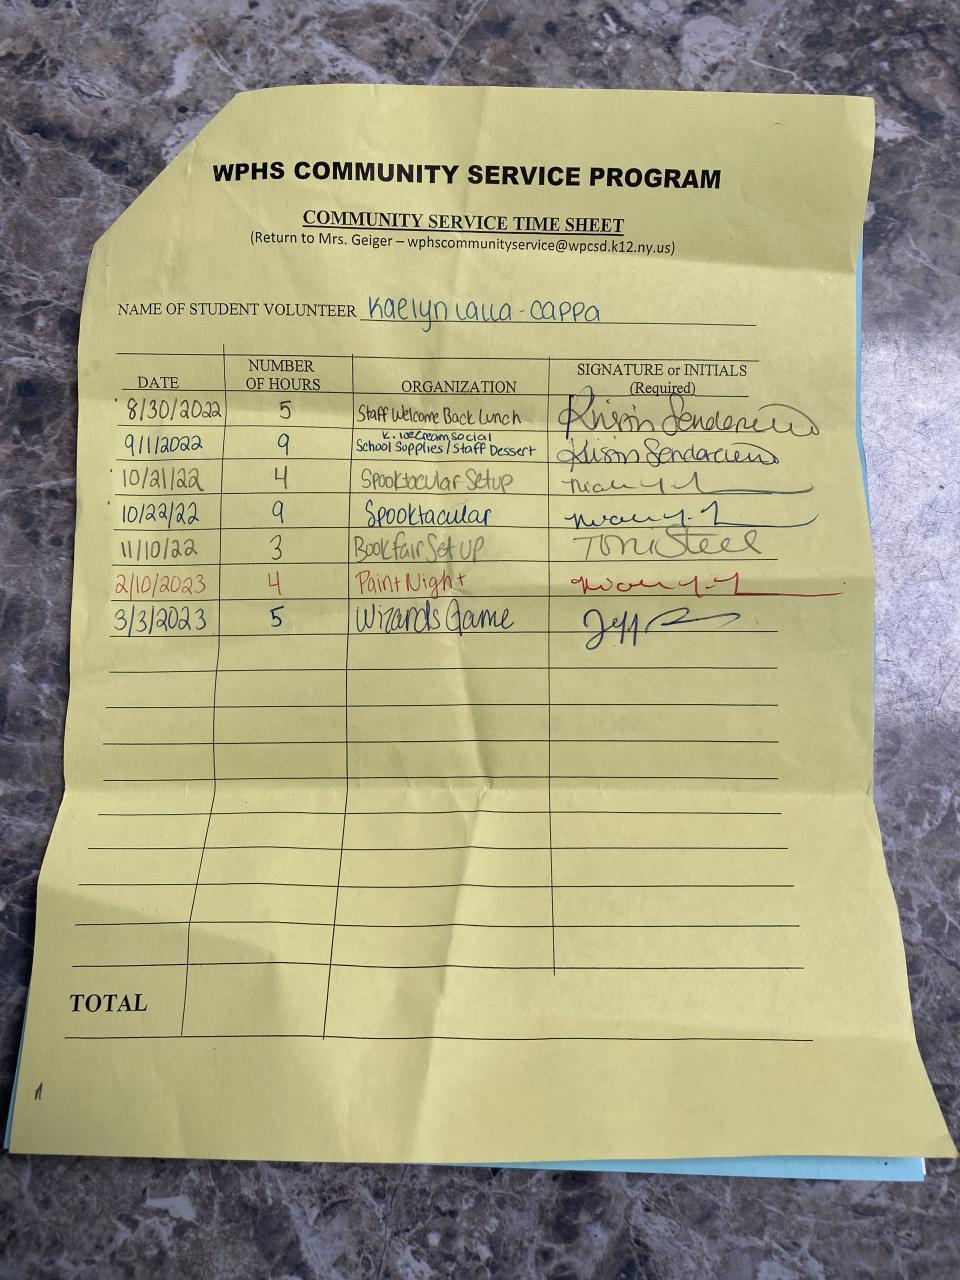 WPHS COMMUNITY SERVICE PROGRAM
COMMUNITY SERVICE TIME SHEET
(Return to Mrs. Geiger – wphscommunityservice@wpcsd.k12.ny.us)
NAME OF STUDENT VOLUNTEER Kaelyn Lalla-Cappa
DATE NUMBER OF HOURS ORGANIZATION SIGNATURE or INITIALS (Required)
8/30/2022 5 Staff Welcome Back Lunch
9/1/2022 9 K. Ice Cream Social School Supplies/Staff Dessert
10/21/22 4 Spooktocular Setup
10/22/22 9 Spooktacular
11/10/22 3 Book Fair Set Up Toni Steel
2/10/2023 4 Paint Night
3/3/2023 5 Wizards Game Jeff
TOTAL